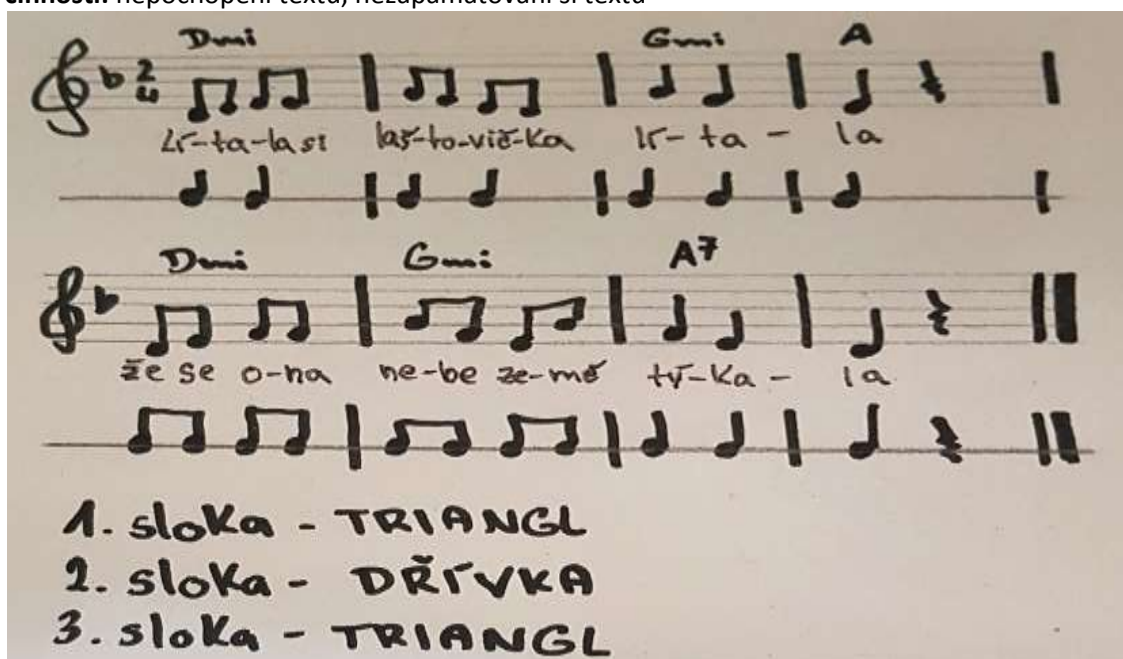 činnosti: nepochopení textu, nezapamatování si textu
Dmi Gmi A
2
4
Lí-ta-la si laš-to-vič-ka lí-ta - la
Dmi Gmi A7
že se o-na ne-be ze-mě tý-ka - la
1. sloka - TRIANGL
2. sloka - DŘÍVKA
3. sloka - TRIANGL